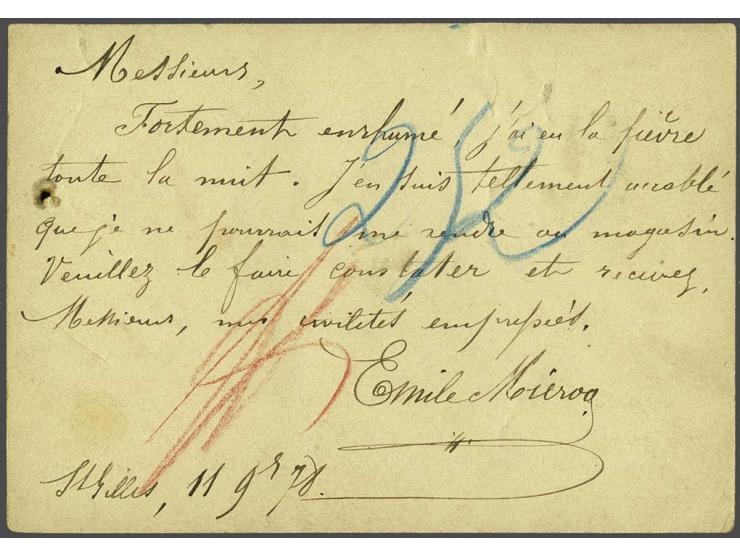 Messieurs,
Fortement enrhumé, j'ai eu la fièvre
toute la nuit. J'en suis tellement accablé
que je ne pourrait me rendre au magasin.
Veuillez le faire constater et recevez,
Messieurs, mes civilités empressés.
Emile
St Gilles, 11 9r 78.